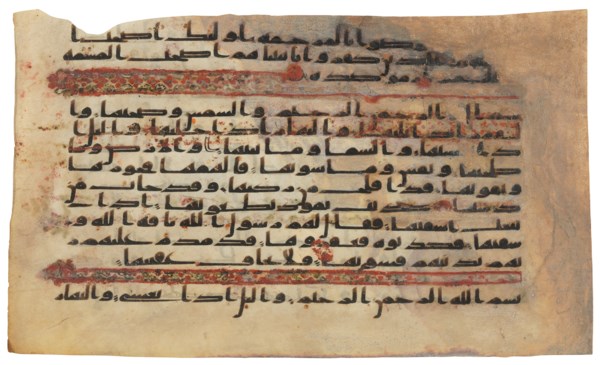 وصوا بالمرحمه اولئك اصحب ا
كفروا بايتنا هم اصحب المشمه
عليهم نار موصده
بسم الله الرحمن الرحيم والشمس وضحيها وا
لقمر اذا تليها والنهار اذا جليها واليل ا
ذا يغشيها والسما وما بنيها والارض وما
طحيها ونفس وما سويها فالهمها فجورها
وتقويها قد افلح من زكيها وقد خاب من
دسيها كذبت ثمود بطغويها اذ ا
نبعث اشقيها فقال لهم رسول الله ناقه الله و
سقيها فكذبوه فعقروها فدمدم عليهم ر
بهم بذنبهم فسويها ولا يخاف عقبيها
بسم الله الرحمن الرحيم واليل اذا يغشى والنهار